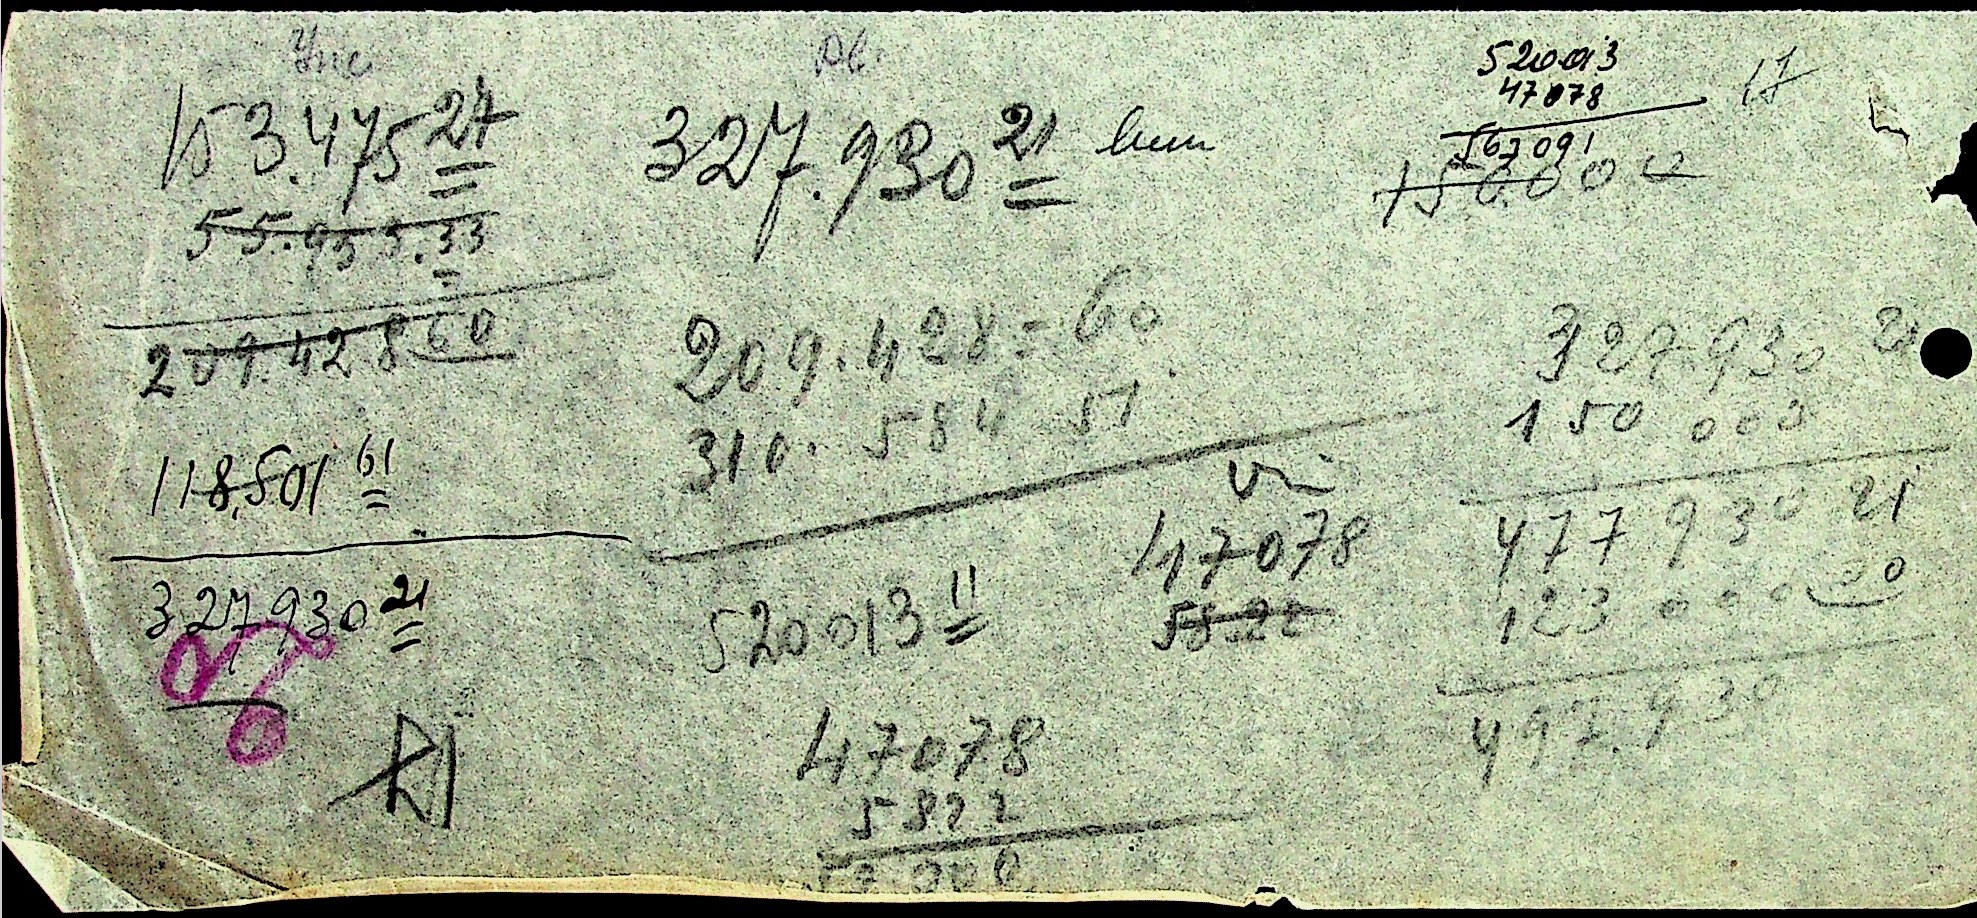 153.475 27
55.953.33
209.428 60
118,501 61
327,930 21
327.930 21
209.428-60
310.584 51
520013 11
47078
5822
47078
5822
520013
47078
567091
150.000
17
327930 21
150 000
477930 21
123 000 00
497.930